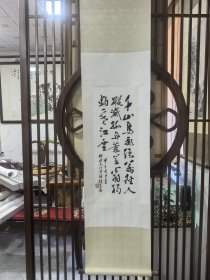 千山鳥飛絕萬徑人
蹤滅孤舟蓑笠翁獨
釣寒江雪